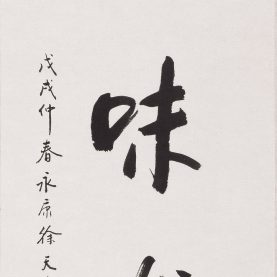 味
戊戌仲春永康徐天